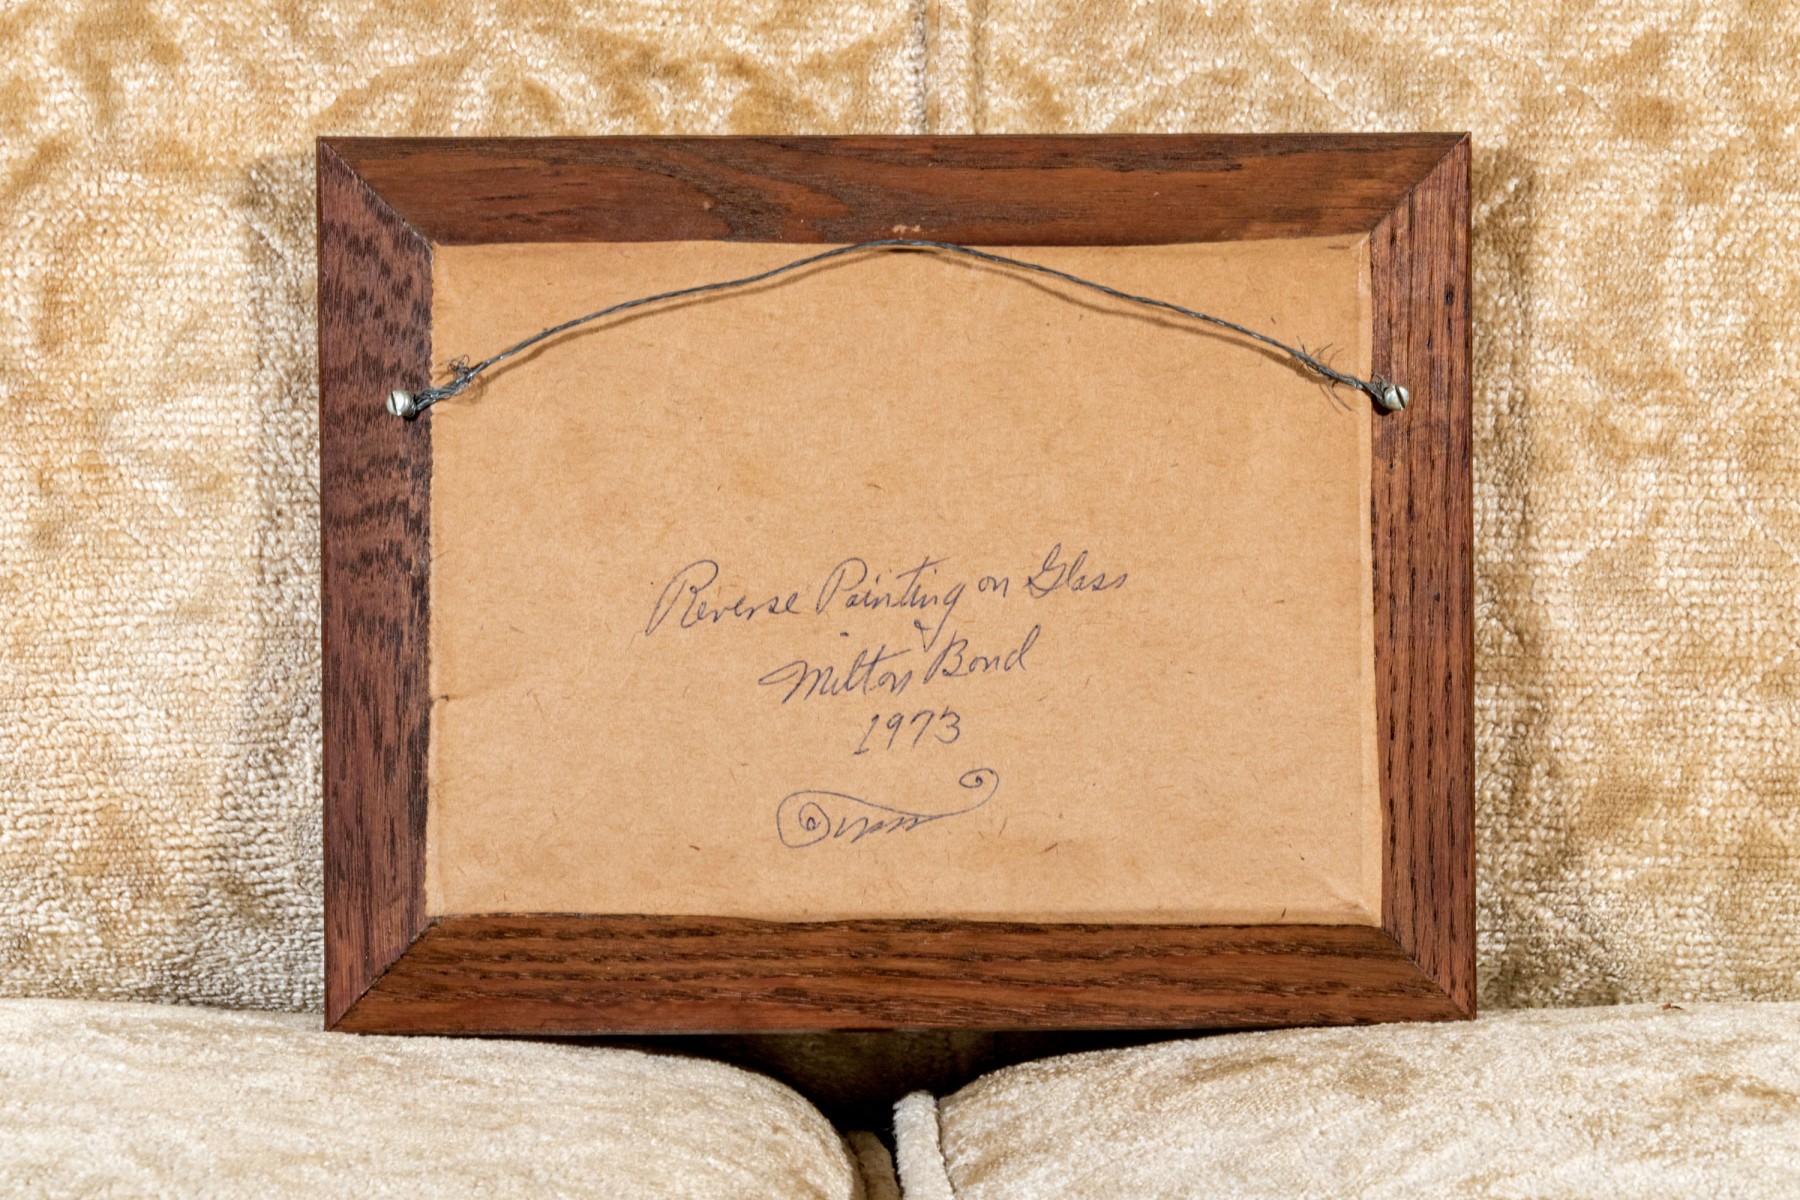 Reverse Painting on Glass
Milton Bond
1973